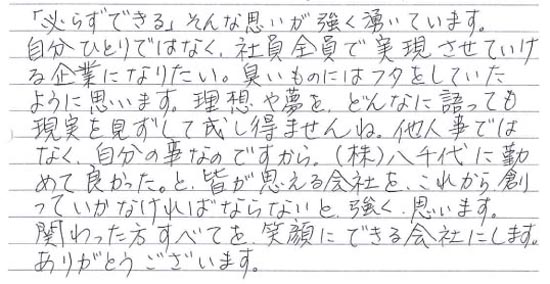 「必らずできる」そんな思いが強く湧いています。
自分ひとりではなく、社員全員で実現させていけ
る企業になりたい。臭いものにはフタをしていた
ように思います。理想や夢を、どんなに語っても
現実を見ずして成し得ませんね。他人事では
なく、自分の事なのですから。(株)八千代に勤
めて良かった。と、皆が思える会社を、これから創
っていかなければならないと、強く思います。
関わった方すべてを、笑顔にできる会社にします。
ありがとうございます。